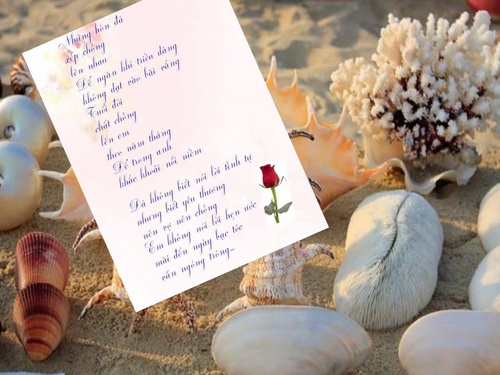 Những hòn đá
xếp chồng
lên nhau
Để ngăn khi triều dâng
không dạt vào bãi vắng
Tuổi đời
chất chồng
lên em
theo năm tháng
Để trong anh
khắc khoải nỗi niềm
Đá không biết nói lời tình tự
nhưng biết yêu thương
nên vợ nên chồng
Em không nói lời hẹn ước
mãi đến ngày bạc tóc
vẫn ngóng trông...